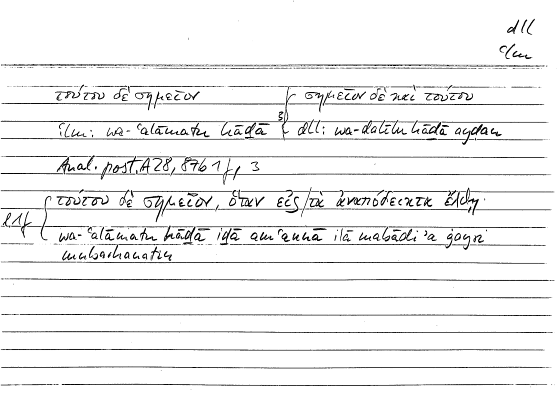 dll
ʿlm
τούτου δὲ σημεῖον { σημεῖον δὲ καὶ τούτου
ʿlm: wa-ʿalāmatu hāḏā 3 { dll: wa-dalīlu hāḏā ayḍan
Anal. post. A 28, 87b 1f, 3
τούτου δὲ σημεῖον, ὅταν εἰς/τὰ ἀναπόδεικτα ἔλθῃ.
b1f {
wa-ʿalāmatu hāḏā iḏā amʿannā ilā mabādiʾa ġayri
mubarhanatin